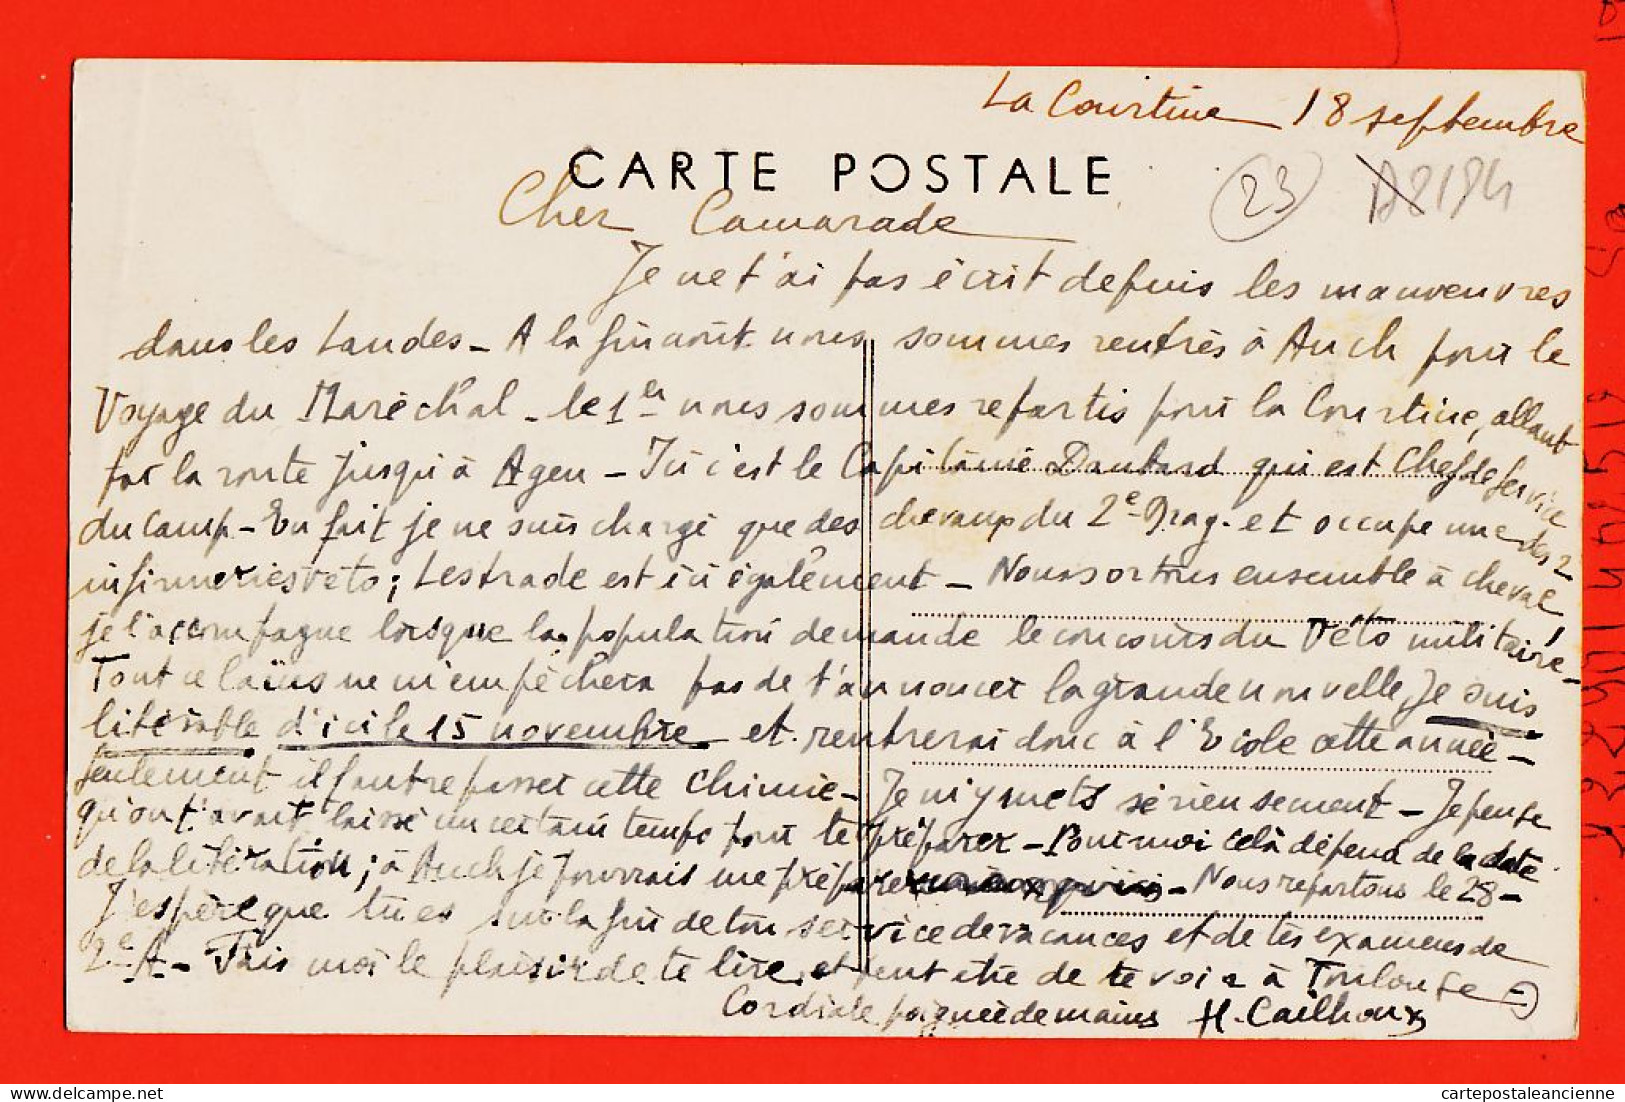 La Courtine 18 septembre
CARTE POSTALE
23 A8184
Cher Camarade
Je ne t'ai pas écrit depuis les manveuvres
dans les Landes - A la fin août nous sommes rentrés à Auch pour le
Voyage du Maréchal - le 1er nous sommes repartis pour la Courtine, allant
par la route jusqu'à Agen - Ici c'est le Capitaine qui est Chef de Service
du camp - En fait je ne suis chargé que des chevaux du 2e Drag. et occupe une des 2
infirmeries véto; Lestrade est ici également - Nous sortons ensemble à cheval
je l'accompagne lorsque la population demande le concours du Véto militaire -
Tout cela ne m'empêchera pas de t'annoncer la grande nouvelle, Je suis
libérable d'ici le 15 novembre et rentrerai donc à l'Ecole cette année -
Seulement il faut repasser cette Chimie - Je m'y mets sérieusement - Je pense
qu'on t'avait laissé un certain temps pour te préparer - Pour moi celà dépend de la date
de la libération; à Auch je pourrais me préparer - Nous repartons le 28 -
J'espère que tu es sur la fin de ton service de vacances et de tes examens de
2e A - Fais moi le plaisir de te lire, et peut être de te voir à Toulouse -
Cordiale poignée de mains H. Cailhoux
delcampe.net
cartepostaleancienne